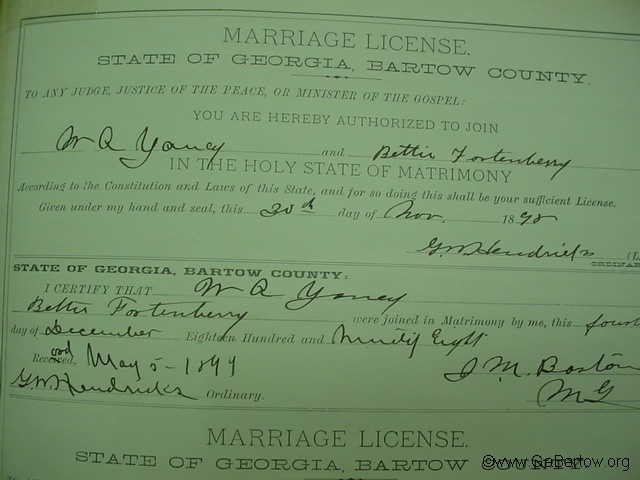 MARRIAGE LICENSE.
STATE OF GEORGIA, BARTOW COUNTY.
TO ANY JUDGE, JUSTICE OF THE PEACE, OR MINISTER OF THE GOSPEL:
YOU ARE HEREBY AUTHORIZED TO JOIN
W Q Yancy and Bettie Fortenberry
IN THE HOLY STATE OF MATRIMONY
According to the Constitution and Laws of this State, and for so doing this shall be your sufficient License.
Given under my hand and seal, this 30th day of Nov. 1898
G.W. Hendricks (L.
ORDINAR
STATE OF GEORGIA, BARTOW COUNTY:
I CERTIFY THAT W Q Yancy
Bettie Fortenberry were joined in Matrimony by me, this fourt
day of December Eighteen Hundred and Ninety Eight
Received, May 5 - 1899 J. M. Barton
G.W. Hendricks Ordinary. M G
MARRIAGE LICENSE.
STATE OF GEORGIA, BARTOW COUNTY
©www.GaBartow.org